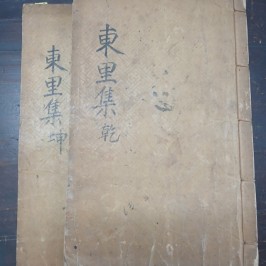 東里集 乾
東里集 坤